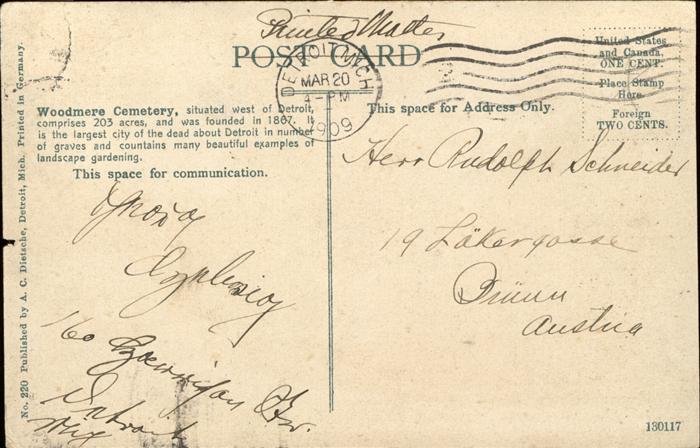 Printed Matter
POST CARD
DETROIT, MICH.
MAR 20
-PM
1909
United States
and Canada,
ONE CENT.
Place Stamp
Here.
Foreign
TWO CENTS.
Woodmere Cemetery, situated west of Detroit,
comprises 203 acres, and was founded in 1867. It
is the largest city of the dead about Detroit in number
of graves and countains many beautiful examples of
landscape gardening.
This space for communication.
This space for Address Only.
Herr Rudolph Schneider
19
Brünn
Austria
160
Detroit
No. 220 Published by A. C. Dietsche, Detroit, Mich. Printed in Germany.
130117